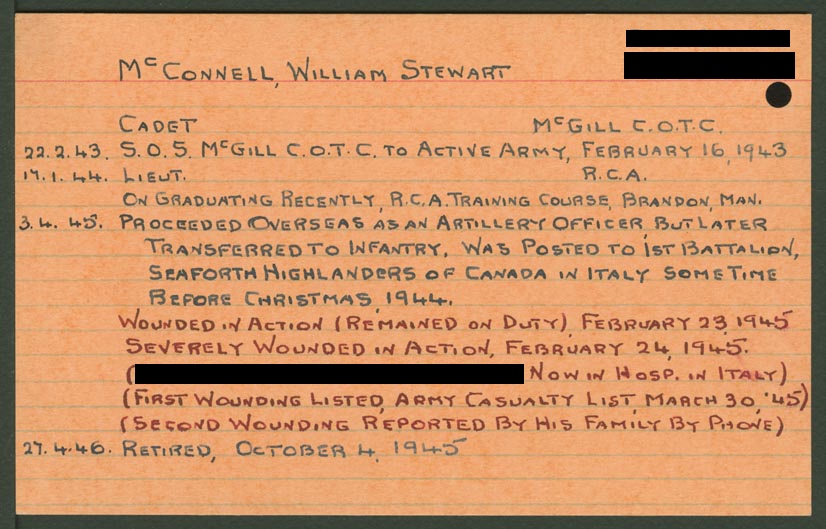 McCONNELL, WILLIAM STEWART
CADET McGILL C.O.T.C.
22.2.43. S.O.S. McGILL C.O.T.C. TO ACTIVE ARMY, FEBRUARY 16, 1943
17.1.44. LIEUT. R.C.A.
ON GRADUATING RECENTLY, R.C.A. TRAINING COURSE, BRANDON, MAN.
3.4.45. PROCEEDED OVERSEAS AS AN ARTILLERY OFFICER, BUT LATER
TRANSFERRED TO INFANTRY. WAS POSTED TO 1ST BATTALION,
SEAFORTH HIGHLANDERS OF CANADA IN ITALY SOME TIME
BEFORE CHRISTMAS, 1944.
WOUNDED IN ACTION (REMAINED ON DUTY), FEBRUARY 23, 1945
SEVERELY WOUNDED IN ACTION, FEBRUARY 24, 1945.
( NOW IN HOSP. IN ITALY)
(FIRST WOUNDING LISTED, ARMY CASUALTY LIST, MARCH 30, '45)
(SECOND WOUNDING REPORTED BY HIS FAMILY BY PHONE)
27.4.46. RETIRED, OCTOBER 4, 1945